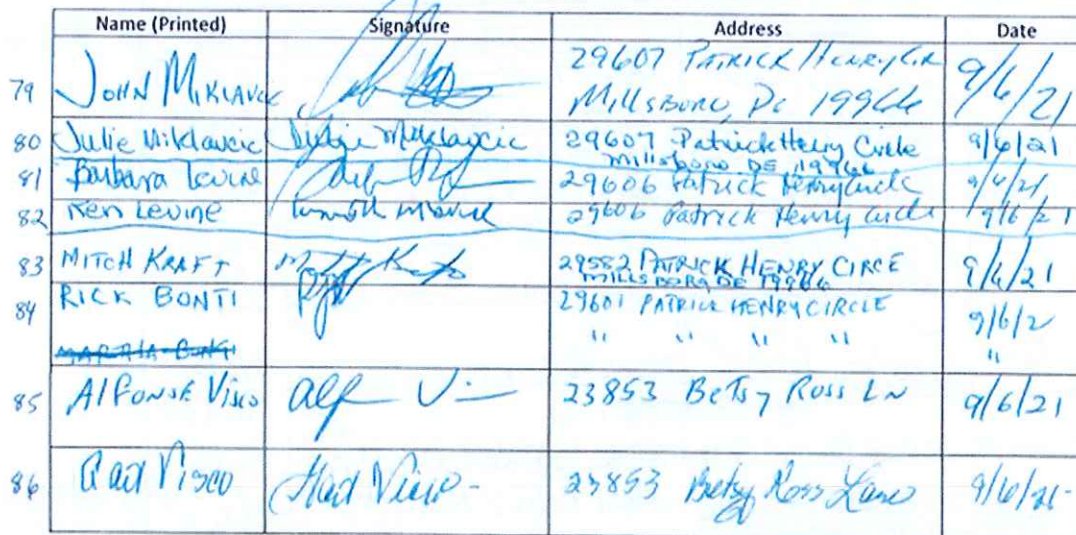 Name (Printed) Signature Address Date
79 John Miklavcic 29607 Patrick Henry Cir 9/6/21
Millsboro, De 19966
80 Julie Miklavcic Julie Miklavcic 29607 Patrick Henry Circle 9/6/21
Millsboro DE 19966
81 Barbara Levine 29606 Patrick Henry Circle 9/6/21
82 Ken Levine 29606 Patrick Henry Circle 9/6/21
83 MITCH KRAFT 29582 PATRICK HENRY CIRCE 9/6/21
MILLSBORO, DE 19966
84 RICK BONTI 29601 PATRICK HENRY CIRCLE 9/6/2
" " " " "
85 Alfonse Visco 23853 Betsy Ross LN 9/6/21
86 Visco Visco - 23853 Betsy Ross Lane 9/6/21